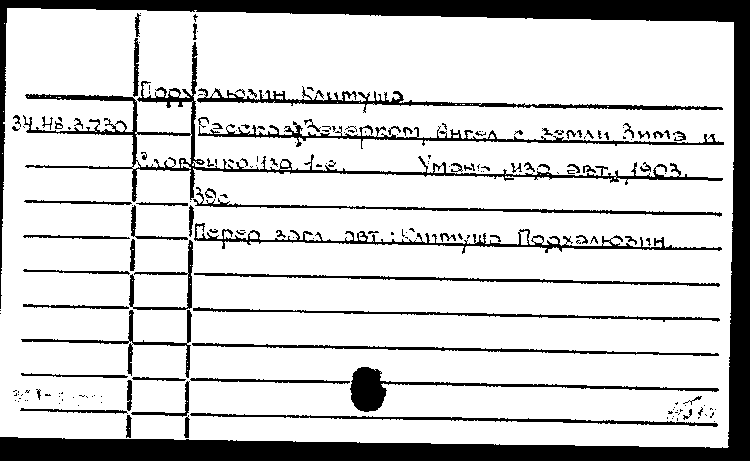 Подхалюзин, Климуша.
34.48.3.730 Рассказ: Вечерком, Ангел с земли, Зима и
Словечко. Изд. 1-е. Умань, изд. авт., 1903.
39с.
Перед загл. авт.: Климуша Подхалюзин.